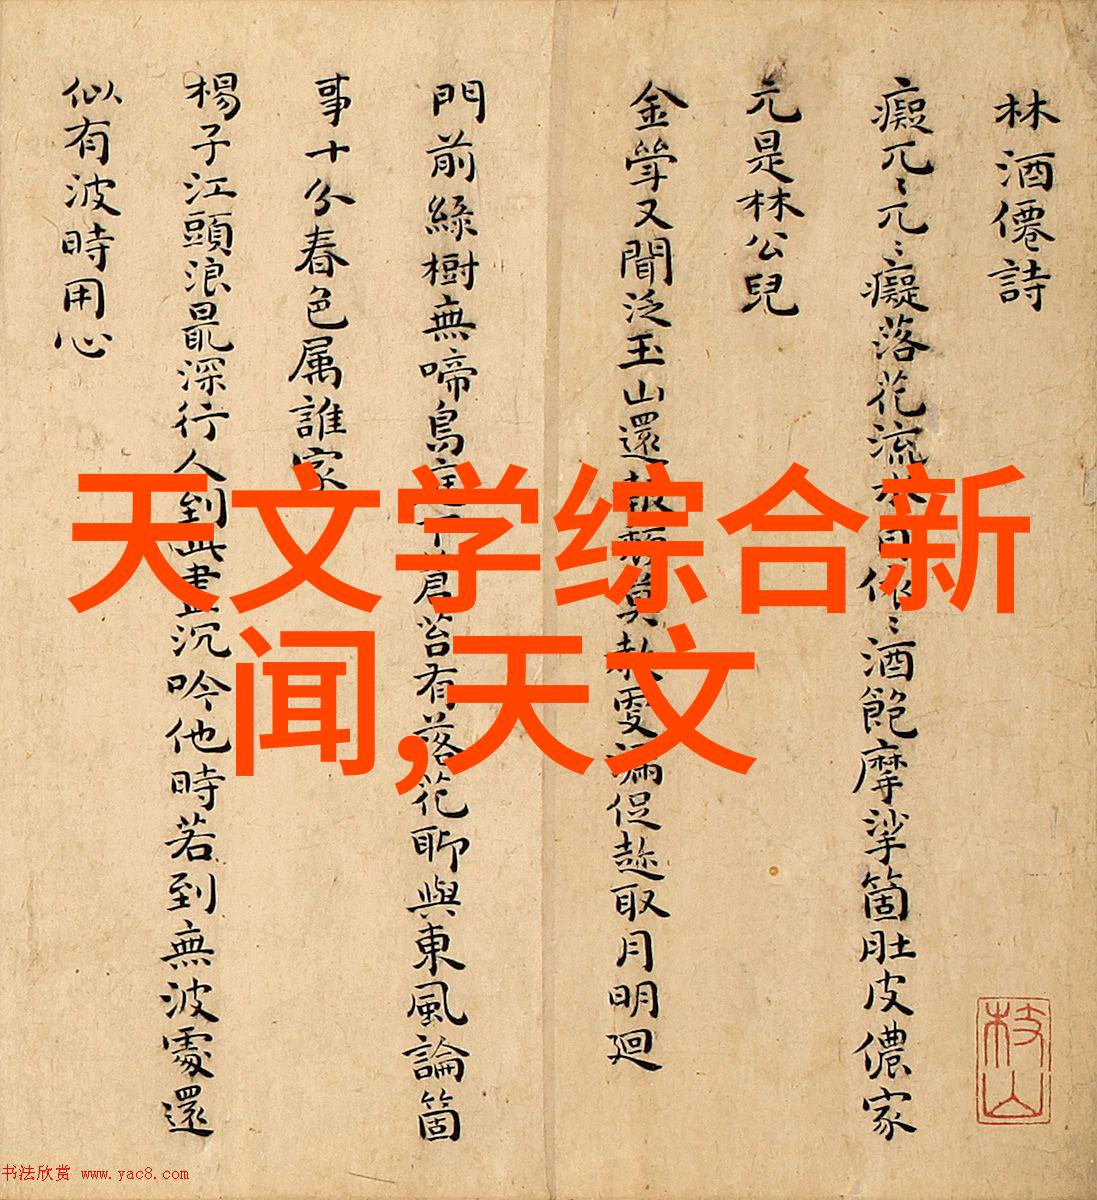 林酒僊詩
癡兀〻兀〻癡落花流水日你〻酒飽摩挲箇肚皮儂家
元是林公兒
金斝又聞泛玉山還報頹莫教雯漏促趂取月明廻
門前綠樹無啼鳥庭下蒼苔有落花聊與東風論箇
事十分春色属誰家
楊子江頭浪最深行人到此盡沉吟他時若到無波處還
似有波時用心
枝山
天文学综合新
闻,天文
书法欣赏 www.yac8.com